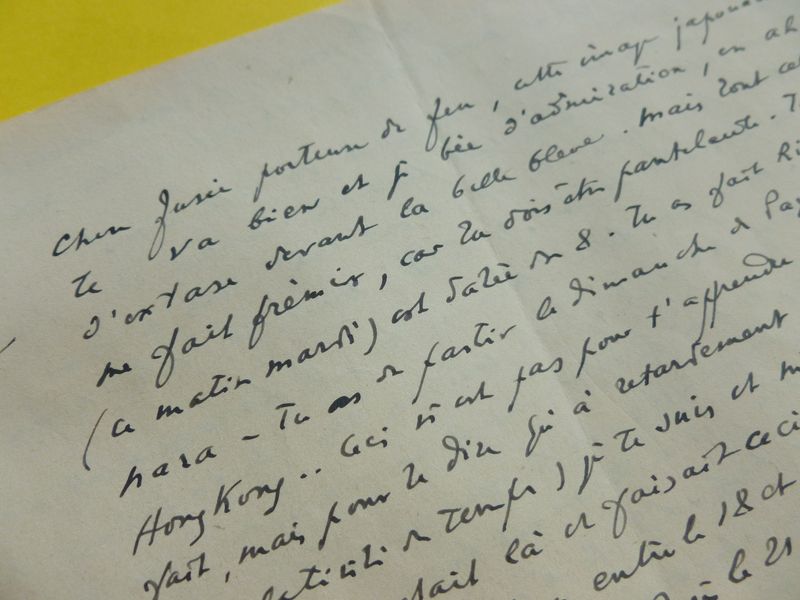 Chère Furie porteuse de feu, cette image japonai
te va bien et je bée d'admiration, en ah
d'extase devant la belle bleue. Mais tout ce
me fait frémir, car tu dois être pantelante. T
(ce matin mardi) est datée du 8. Tu as fait Ri
para - Tu as dû partir le dimanche de Paq
HongKong.. Ceci n'est pas pour t'apprendre
fait, mais pour te dire qu'à retardement
lativité du Temps) je te suis et m
fait là et faisait ceci
entre le 18 et
le 21